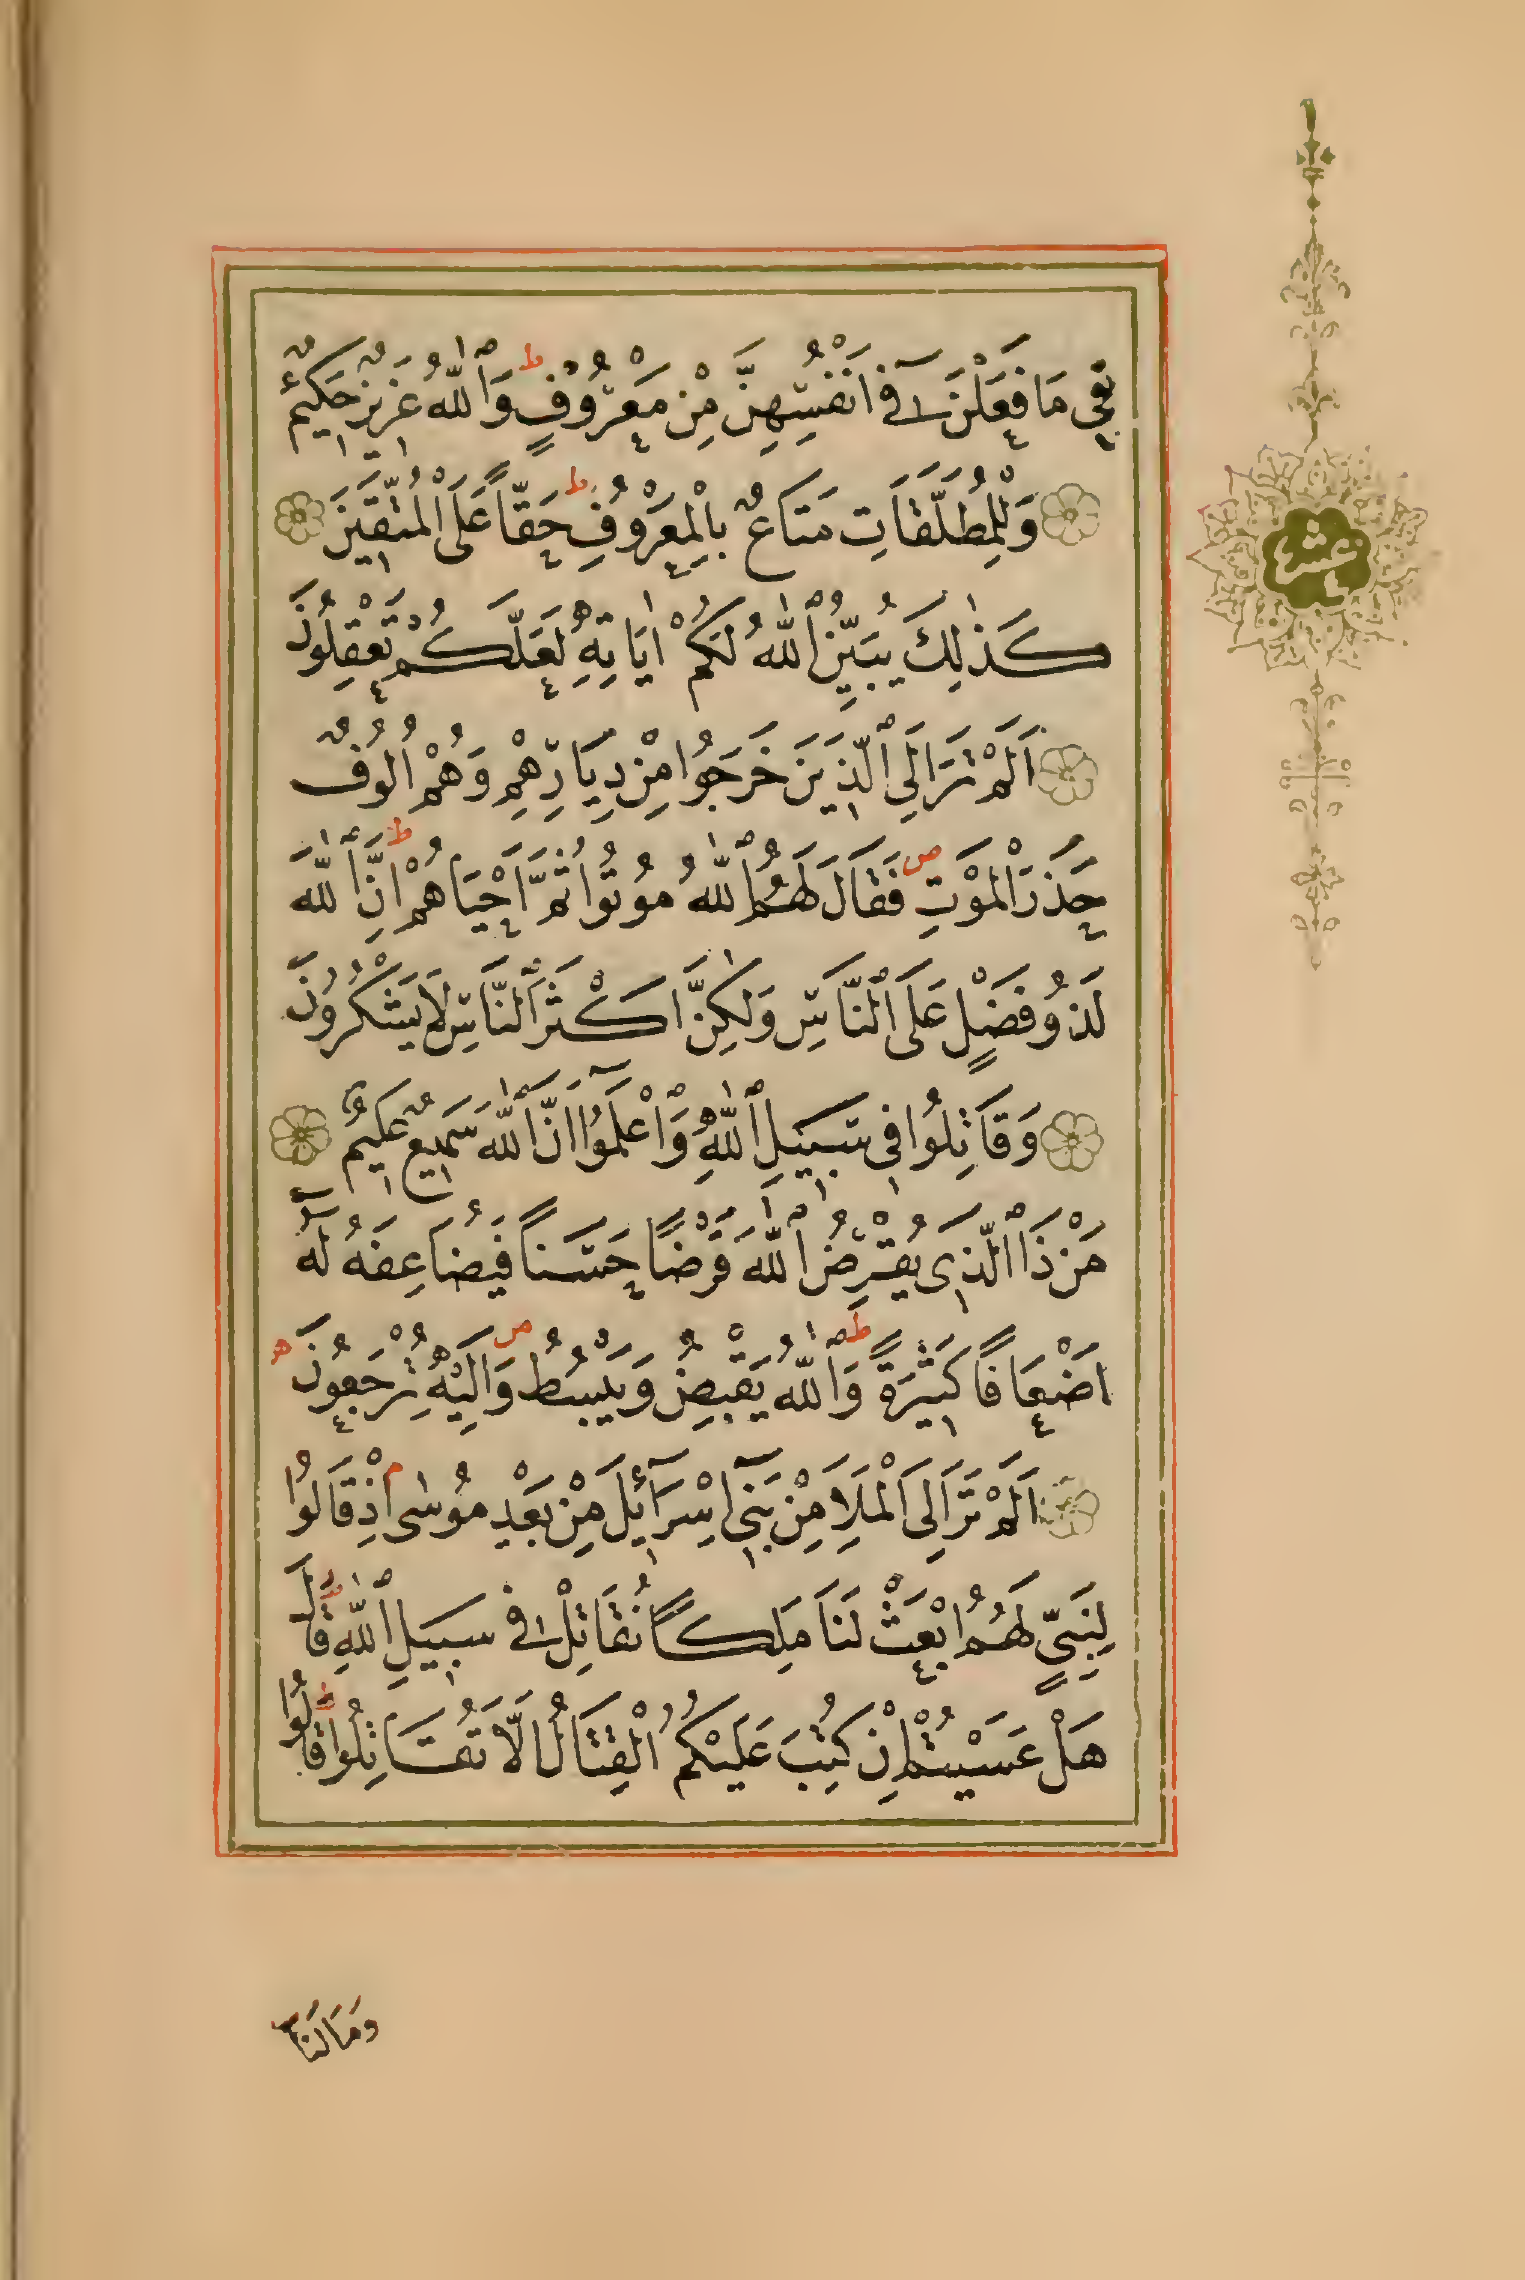 فِي مَا فَعَلْنَ فِٓي اَنْفُسِهِنَّ مِنْ مَعْرُوفٍ ط وَٱللّٰهُ عَزِيزٌ حَكِيمٌ
وَلِلْمُطَلَّقَاتِ مَتَاعٌ بِالْمَعْرُوفِ ط حَقّاً عَلَى الْمُتَّقِينَ
كَذٰلِكَ يُبَيِّنُ ٱللّٰهُ لَكُمْ اٰيَاتِهِ لَعَلَّكُمْ تَعْقِلُونَ
اَلَمْ تَرَ اِلَى ٱلَّذِينَ خَرَجُوا مِنْ دِيَارِهِمْ وَهُمْ اُلُوفٌ
حَذَرَ الْمَوْتِ ص فَقَالَ لَهُمُ ٱللّٰهُ مُوتُوا ثُمَّ اَحْيَاهُمْ ط اِنَّ ٱللّٰهَ
لَذُو فَضْلٍ عَلَى ٱلنَّاسِ وَلٰكِنَّ اَكْثَرَ ٱلنَّاسِ لَا يَشْكُرُونَ
وَقَاتِلُوا فِي سَبِيلِ ٱللّٰهِ وَٱعْلَمُٓوا اَنَّ ٱللّٰهَ سَمِيعٌ عَلِيمٌ
مَنْ ذَا ٱلَّذِي يُقْرِضُ ٱللّٰهَ قَرْضًا حَسَنًا فَيُضَاعِفَهُ لَهُٓ
اَضْعَافًا كَثِيرَةً ط وَٱللّٰهُ يَقْبِضُ وَيَبْسُطُ ص وَاِلَيْهِ تُرْجَعُونَ هـ
اَلَمْ تَرَ اِلَى الْمَلَاِ مِنْ بَنِٓي اِسْرَٓائِلَ مِنْ بَعْدِ مُوسٰى م اِذْ قَالُوا
لِنَبِيٍّ لَهُمُ ابْعَثْ لَنَا مَلِكًا نُقَاتِلْ فِي سَبِيلِ ٱللّٰهِ ط قَالَ
هَلْ عَسَيْتُمْ اِنْ كُتِبَ عَلَيْكُمُ الْقِتَالُ اَلَّا تُقَاتِلُوا ط قَالُوا
عشر
وَمَا لَنَٓا